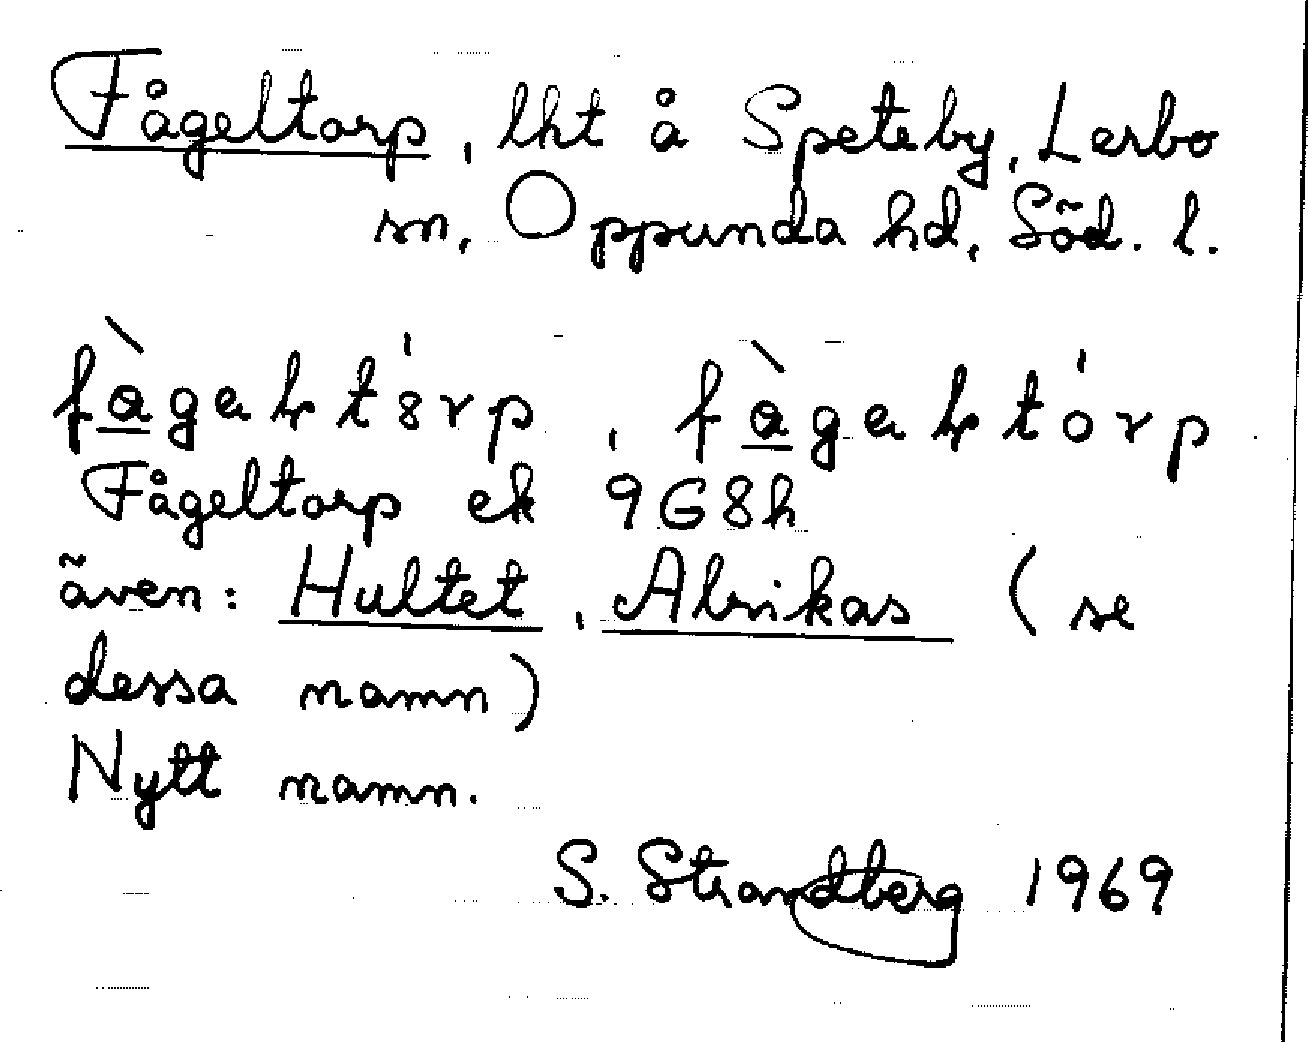 Fågeltorp, lht å Speteby, Lerbo
sn, Oppunda hd, Söd. l.
Fågeltorp ek 9G8h
även: Hultet, Alrikas (se
dessa namn)
Nytt namn.
S. Strandberg 1969